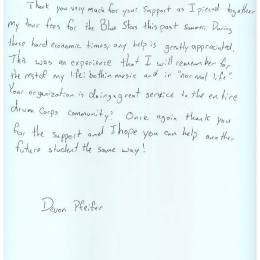 Thank you very much for your support as I pieced together
my tour fees for the Blue Stars this past summer. During
these hard economic times, any help is greatly appreciated.
This was an experience that I will remember for
the rest of my life: both in music and in "normal life".
Your organization is doing a great service to the entire
drum corps community! Once again thank you
for the support and I hope you can help another
future student the same way!
Devon Pfeifer